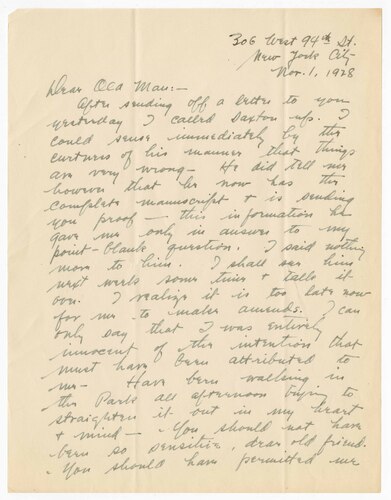 306 West 94th St.
New York City
Nov. 1, 1928
Dear Old Man:-
After sending off a letter to you
yesterday I called Saxton up. I
could sense immediately by the
curtness of his manner that things
are very wrong - He did tell me
however that he now has the
complete manuscript & is sending
you proof - this information he
gave me only in answer to my
point-blank question. I said nothing
more to him. I shall see him
next week some time & talk it
over. I realize it is too late now
for me to make amends. I can
only say that I was entirely
innocent of the intention that
must have been attributed to
me - Have been walking in
the Park all afternoon trying to
straighten it out in my heart
& mind - You should not have
been so sensitive, dear old friend.
You should have permitted me